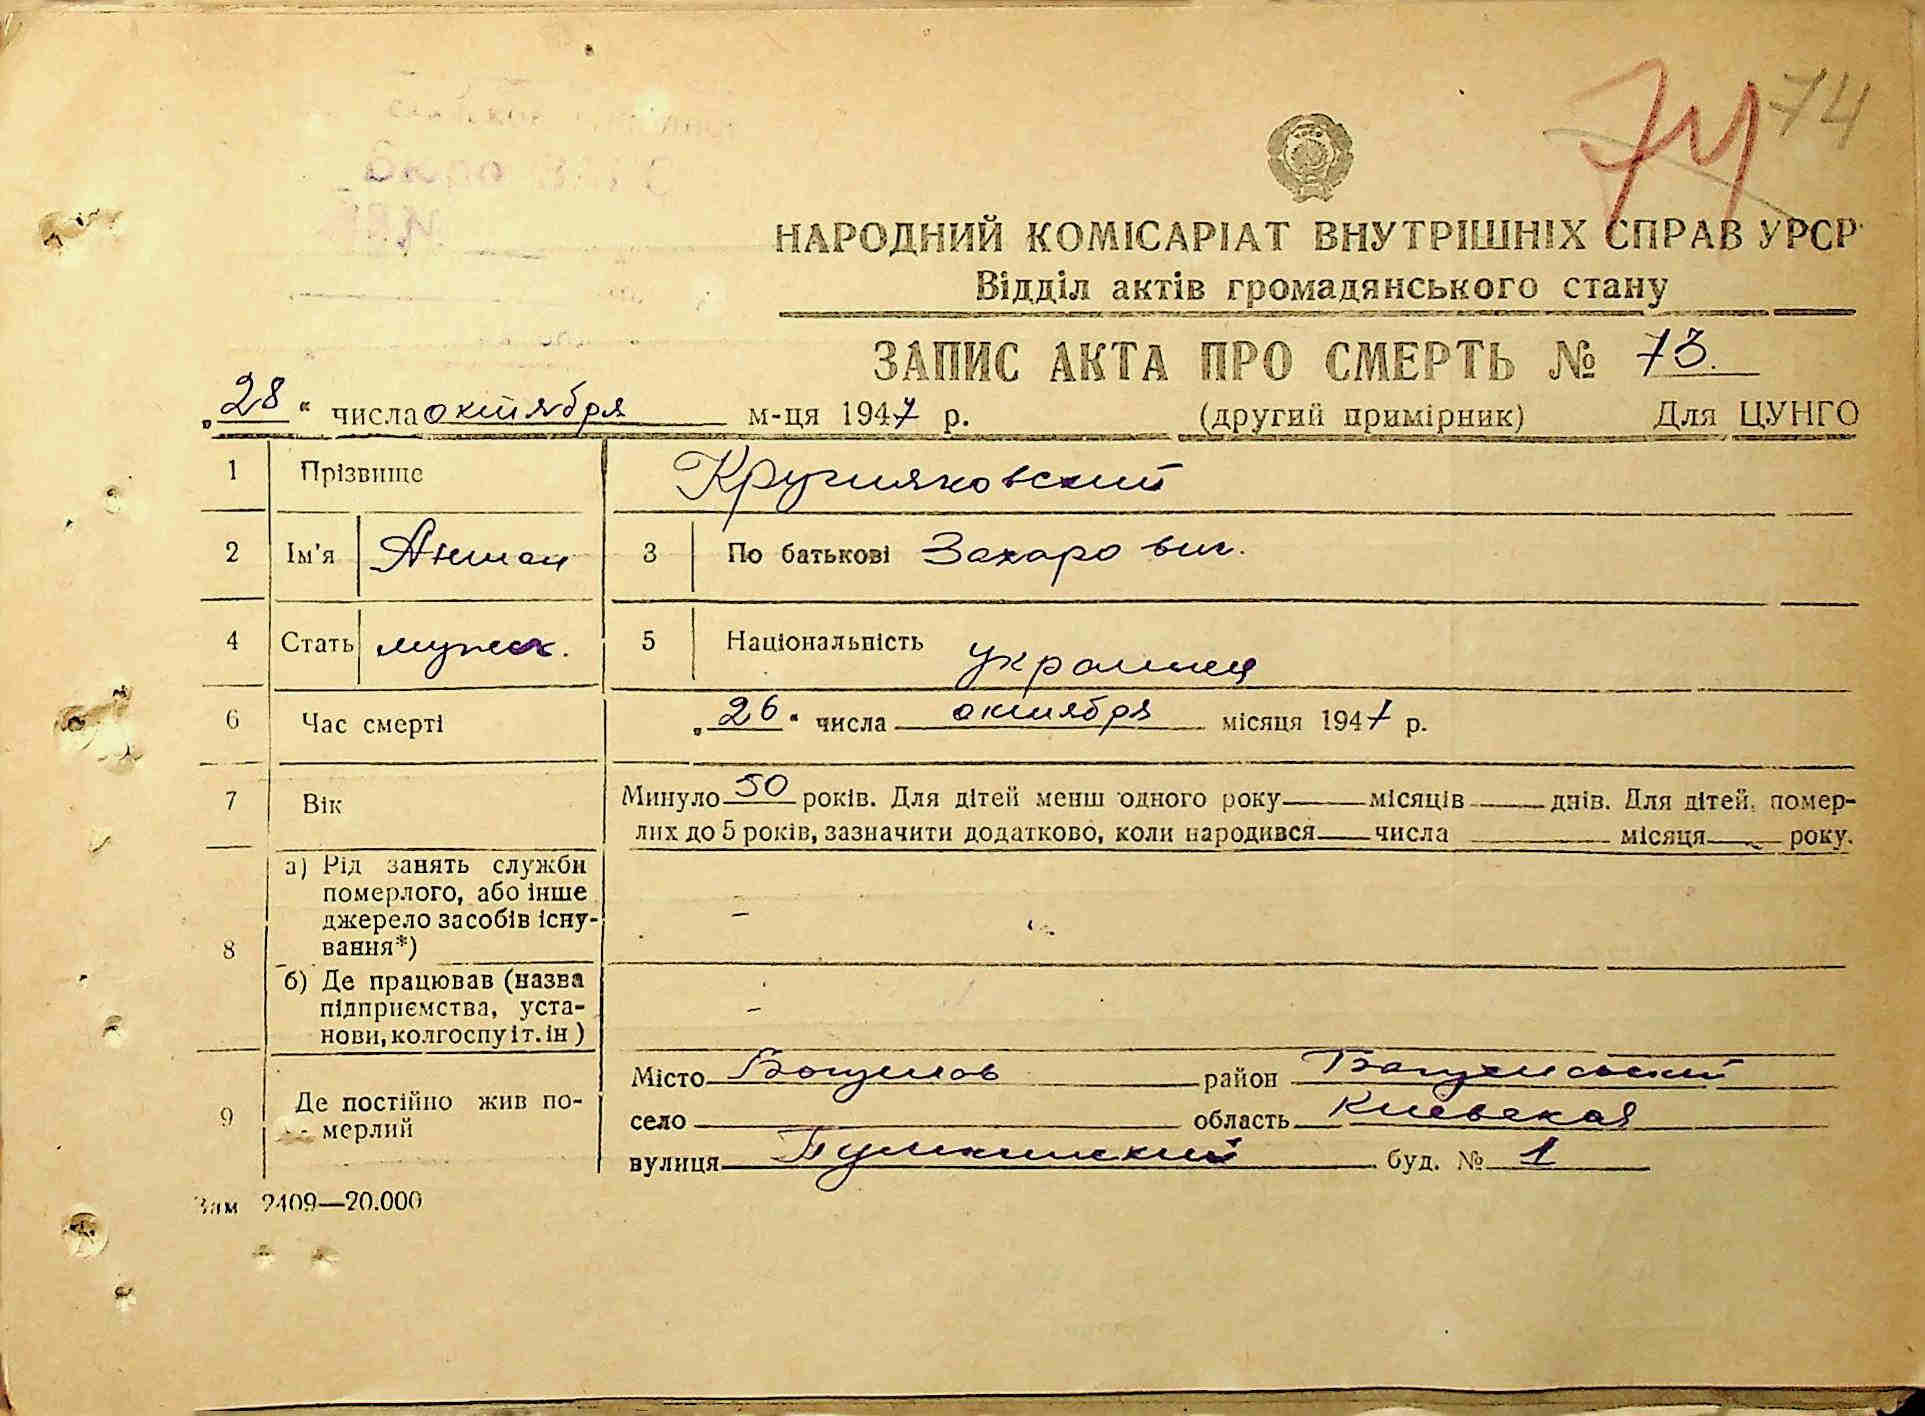 74 74
НАРОДНИЙ КОМІСАРІАТ ВНУТРІШНІХ СПРАВ УРСР
Відділ актів громадянського стану
ЗАПИС АКТА ПРО СМЕРТЬ № 73.
„28“ числа октября м-ця 1947 р. (другий примірник) Для ЦУНГО
1 Прізвище Кругляковский
2 Ім'я Антон 3 По батькові Захарович.
4 Стать мужск. 5 Національність украинец
6 Час смерті „26“ числа октября місяця 1947 р.
7 Вік Минуло 50 років. Для дітей менш одного року — місяців — днів. Для дітей, помер-
лих до 5 років, зазначити додатково, коли народився — числа — місяця — року.
8 а) Рід занять служби
померлого, або інше
джерело засобів існу-
вання*) –
б) Де працював (назва
підприємства, уста-
нови, колгоспу і т. ін) –
9 Де постійно жив по-
мерлий
Місто Богуслав район Богуславский
село область Киевская
вулиця Пушкинский буд. № 1
Зам 2409—20.000